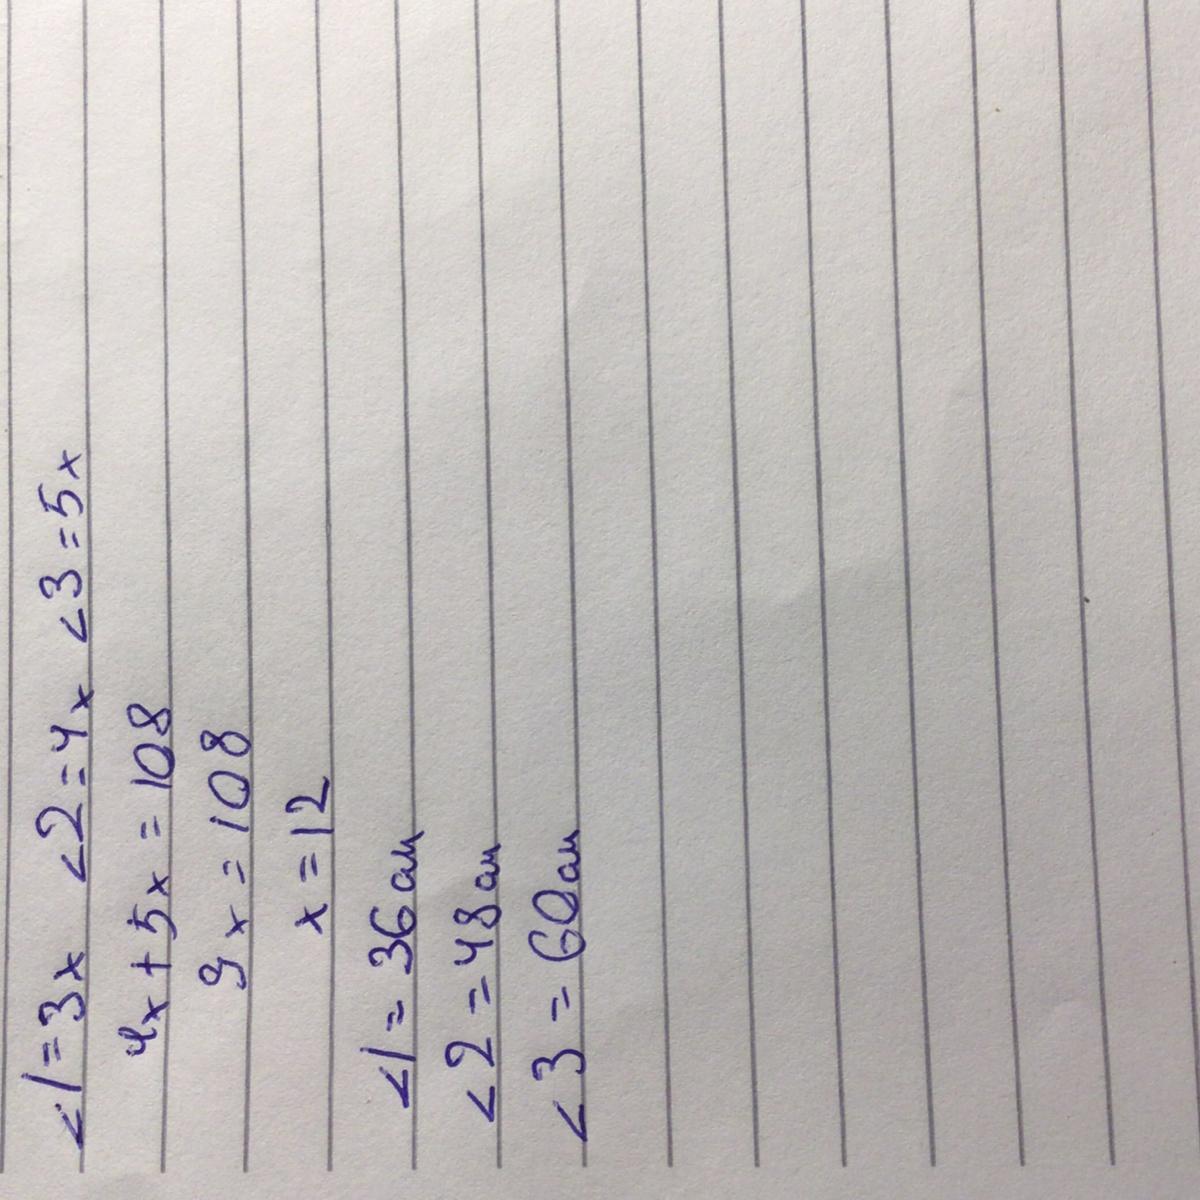 <1=3x <2=4x <3=5x
4x+5x=108
9x=108
x=12
<1=36см
<2=48см
<3=60см